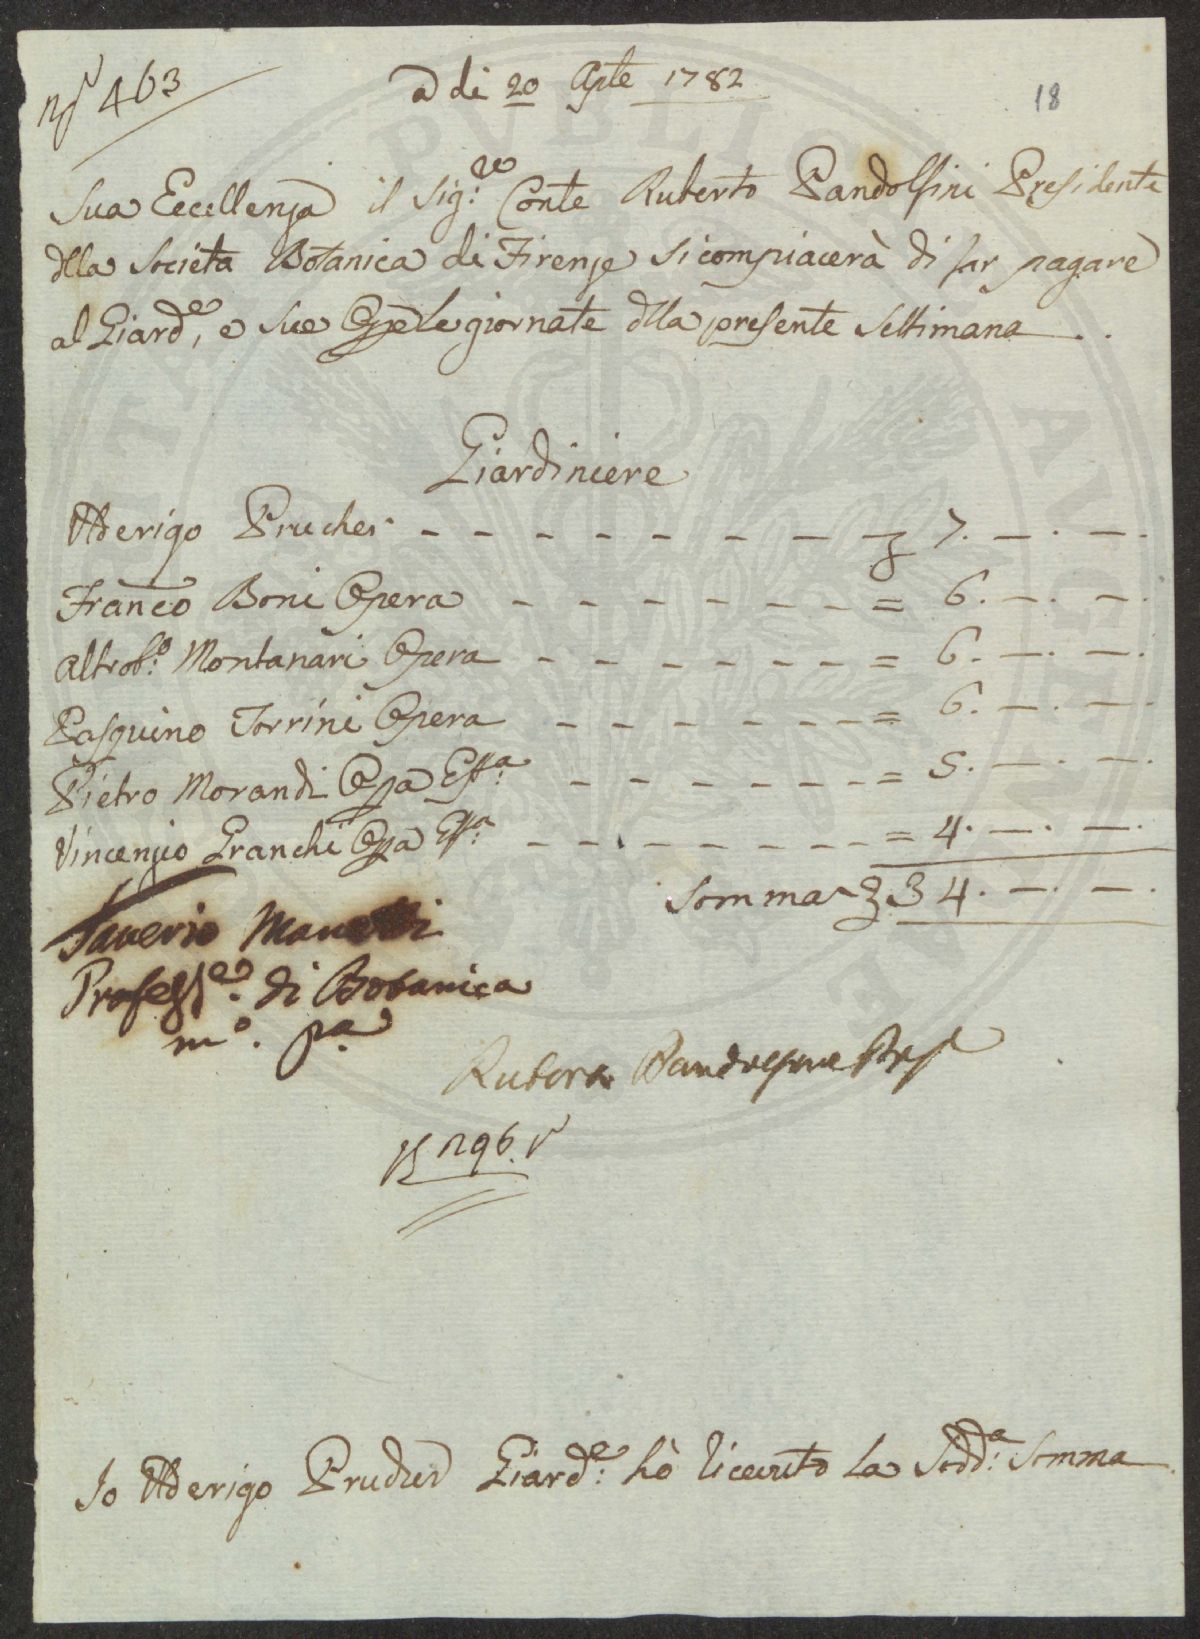 N.º 463
a di 20 Aple 1782
18
Sua Eccellenza il Sig.re Conte Ruberto Pandolfini Presidente
dlla Società Botanica di Firenze si compiacerà di far pagare
al Giard.e, e sue Opẽ le giornate dlla presente Settimana
Giardiniere
Arrigo Pruches - - - - - - - - - 7. —. —.
Franco Boni Opera - - - - - - - = 6. —. —.
Altrob.o Montanari Opera - - - - - - = 6. —. —.
Pasquino Torrini Opera - - - - - - = 6. —. —.
Pietro Morandi Opa Ess.a - - - - - - = 5. —. —.
Vincenzio Granchi Opa Ess.a - - - - - - - = 4. —. —.
Somma 34. —. —.
Saverio Manetti
Profess.e di Botanica
m.o p.a
Ruberto Pandolfini Pres
296.
Io Arrigo Pruches Giard.e hò ricevuto la Sudd.a Somma
PVBLICA